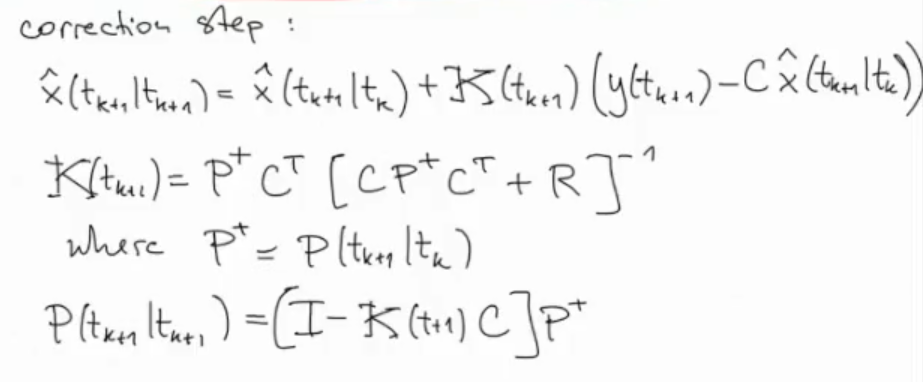 correction step :
x̂(t_{k+1}|t_{k+1}) = x̂(t_{k+1}|t_k) + K(t_{k+1}) (y(t_{k+1}) - C x̂(t_{k+1}|t_k))
K(t_{k+1}) = P⁺ Cᵀ [C P⁺ Cᵀ + R]⁻¹
where P⁺ = P(t_{k+1}|t_k)
P(t_{k+1}|t_{k+1}) = [I - K(t+1) C] P⁺